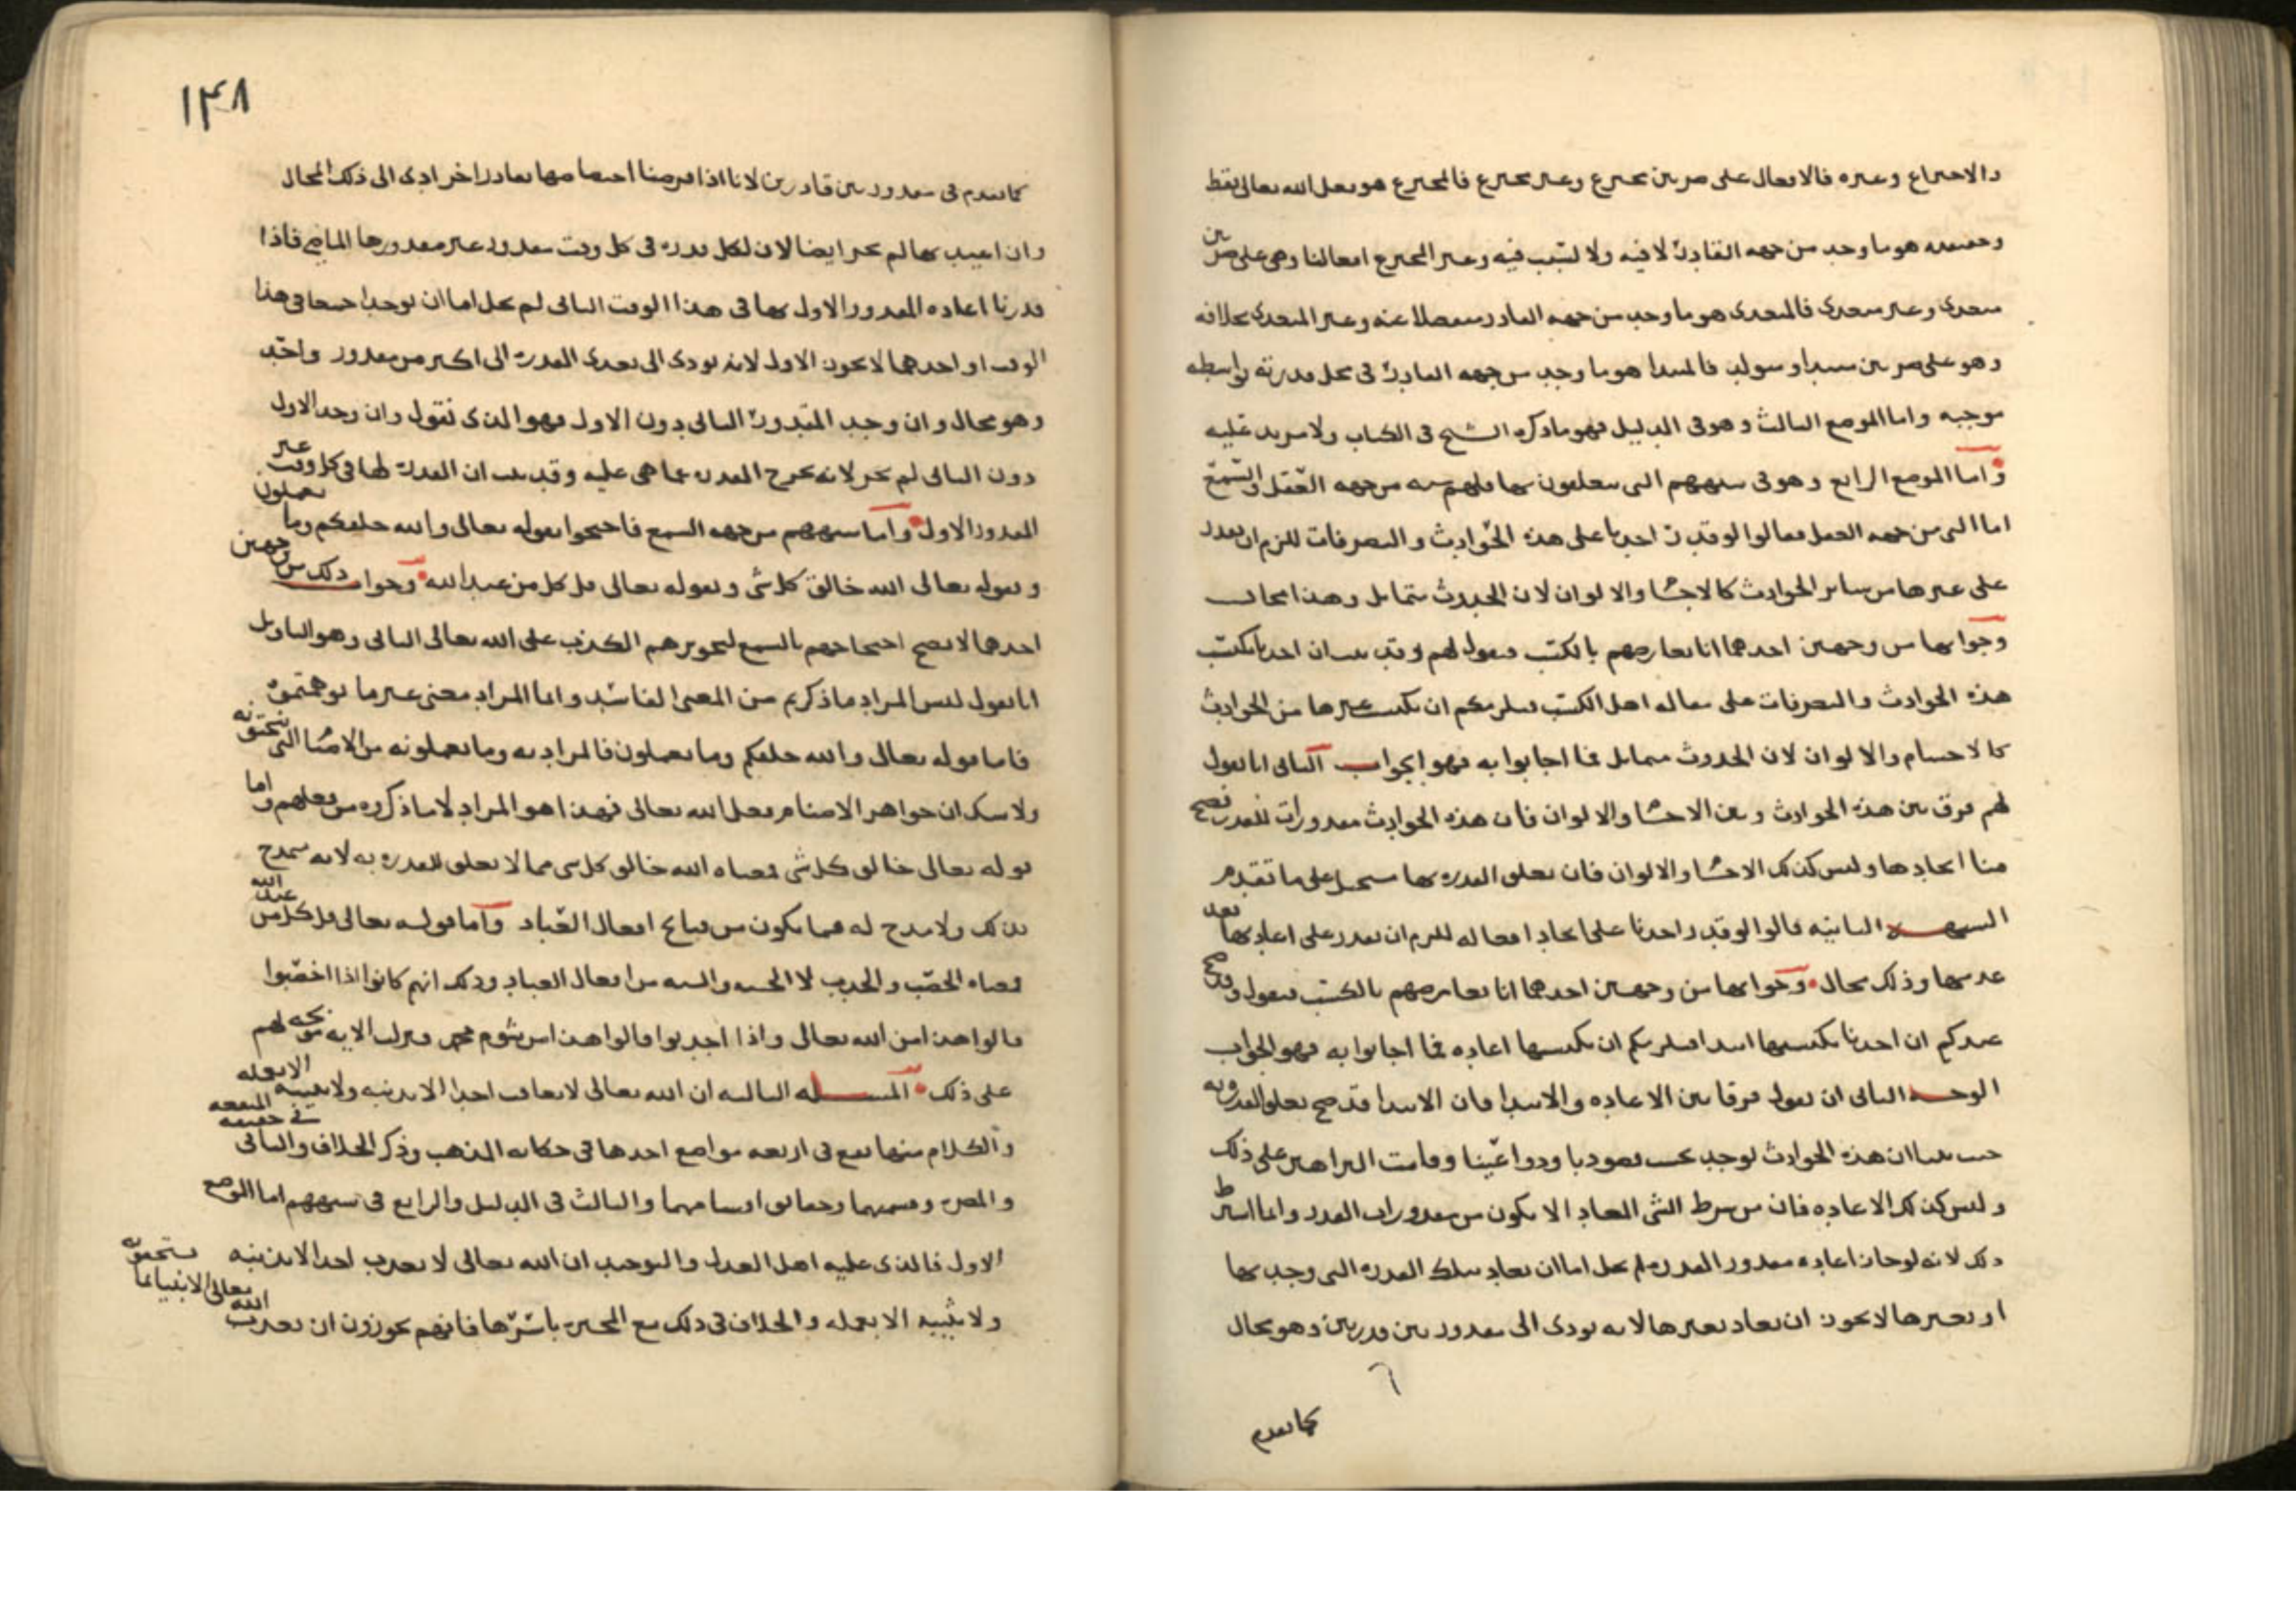 والاختراع وغيره فالافعال على ضربين مخترع وغير مخترع فالمخترع هو فعل الله تعالى فقط
وحقيقته هو ما وجد من جهة القادر لا فيه ولا لسبب فيه وغير المخترع افعالنا وهي على ضربين
متعدي وغير متعدي فالمتعدي هو ما وجد من جهة القادر منفصلا عنه وغير المتعدي بخلافه
وهو على ضربين مبتدا ومتولد فالمبتدا هو ما وجد من جهة القادر في محل قدرته بواسطة
موجبة واما الموضع الثالث وهو في الدليل فهو ما ذكره الشيخ في الكتاب ولا مزيد عليه
واما الموضع الرابع وهو في شبههم التي يتعلقون بها فلهم شبه من جهة العقل والسمع
اما التي من جهة العقل فقالوا لو قدر احدنا على هذه الحوادث والتصرفات للزم ان يقدر
على غيرها من سائر الحوادث كالاجسام والالوان لان الحدوث متماثل وهذا محال
وجوابها من وجهين احدهما انا نعارضهم بالكسب فنقول لهم وقد ان احدنا يكتسب
هذه الحوادث والتصرفات على مقالة اهل الكسب فيلزمكم ان يكتسب غيرها من الحوادث
كالاجسام والالوان لان الحدوث متماثل فما اجابوا به فهو الجواب الثاني انا نقول
لهم فرق بين هذه الحوادث وبين الاجسام والالوان فان هذه الحوادث مقدورات للقدر فصح
منا ايجادها وليس كذلك الاجسام والالوان فان تعلق القدرة بها مستحيل على ما تقدم
الشبهة الثانية قالوا لو قدر احدنا على ايجاد افعاله للزم ان يقدر على اعادتها بعد
عدمها وذلك محال وجوابها من وجهين احدهما انا نعارضهم بالكسب فنقول قد صح
عندكم ان احدنا يكتسبها ابتدا فيلزمكم ان يكتسبها اعادة فما اجابوا به فهو الجواب
الوجه الثاني ان نقول فرقا بين الاعادة والابتدا فان الابتدا قد صح تعلق القدرة به
حيث بينا ان هذه الحوادث توجد بحسب قصودنا ودواعينا وقامت البراهين على ذلك
وليس كذلك الاعادة فان من شرط الشي المعاد الا يكون من مقدورات القدر وانما اشترط
ذلك لانه لو جاز اعادة مقدور القدرة لم يخل اما ان يعاد بتلك القدرة التي وجد بها
او بغيرها لا يجوز ان يعاد بغيرها لانه يودي الى مقدور بين قدرتين وهو محال
كما تقدم
١٤٨
كما تقدم في مقدور بين قادرين لانا اذا فرضنا اختصاصها بقادر اخر ادى الى ذلك المحال
وان اعيد بها لم يجز ايضا لان لكل قدرة في كل وقت مقدور غير مقدورها الماضي فاذا
قدرنا اعادة المقدور الاول بها في هذا الوقت الثاني لم يخل اما ان يوجدا جميعا في هذا
الوقت او احدهما لا يجوز الاول لانه يودي الى تعدي القدرة الى اكثر من مقدور واحد
وهو محال وان وجد المقدور الثاني دون الاول فهو الذي نقول وان وجد الاول
دون الثاني لم يجز لانه يخرج القدرة عما هي عليه وقد ثبت ان القدرة لها في كل وقت غير
المقدور الاول واما شبههم من جهة السمع فاحتجوا بقوله تعالى والله خلقكم وما تعملون
وبقوله تعالى الله خالق كل شي وبقوله تعالى قل كل من عند الله وجواب ذلك من وجهين
احدهما لا يصح احتجاجهم بالسمع لتجويزهم الكذب على الله تعالى الثاني وهو التاويل
انا نقول ليس المراد ما ذكرتم من المعنى الفاسد وانما المراد معنى غير ما توهمتموه
فاما قوله تعالى والله خلقكم وما تعملون فالمراد به وما تعملونه من الاصنام التي تنحتونه
ولا شك ان جواهر الاصنام فعل الله تعالى فهذا هو المراد لا ما ذكروه من فعلهم واما
قوله تعالى خالق كل شي فمعناه الله خالق كل شي مما لا تعلق للقدرة به لانه تمدح
بذلك ولا مدح له فيما يكون من قبائح افعال العباد واما قوله تعالى قل كل من عند الله
فمعناه الخصب والجدب لا الحسنة والسيئة من افعال العباد وذلك انهم كانوا اذا اخصبوا
قالوا هذا من الله تعالى واذا اجدبوا قالوا هذا من شؤم محمد فنزلت الاية لهم
على ذلك المسئلة الثالثة ان الله تعالى لا يعاقب احدا الا بذنبه ولا يثيبه الا بعمله
والكلام منها يقع في اربعة مواضع احدها في حكاية المذهب وذكر الخلاف والثاني في حقيقة المنفعة
والمضرة وقسمتهما وحقائق اقسامهما والثالث في الدليل والرابع في شبههم اما الموضع
الاول فالذي عليه اهل العدل والتوحيد ان الله تعالى لا يعذب احدا الا بذنبه
ولا يثيبه الا بعمله والخلاف في ذلك مع المجبرة باسرها فانهم يجوزون ان يعذب الله تعالى الانبيا